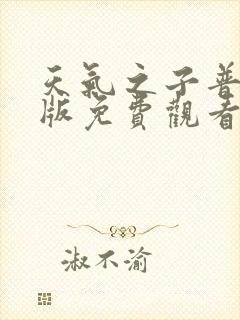 天氣之子普
版免費觀看
淑不渝